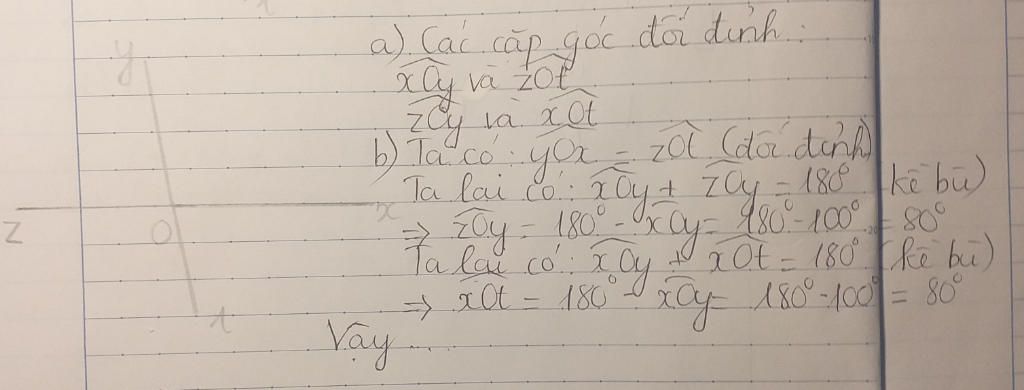 a) Các cặp góc đối đỉnh:
xOy và zOt
zOy và xOt
b) Ta có: yOx = zOt (đối đỉnh)
Ta lại có: xOy + zOy = 180° (kề bù)
⇒ zOy = 180° - xOy = 180° - 100° = 80°
Ta lại có: xOy + xOt = 180° (kề bù)
⇒ xOt = 180° - xOy = 180° - 100° = 80°
Vậy ...
y
x
z
O
t